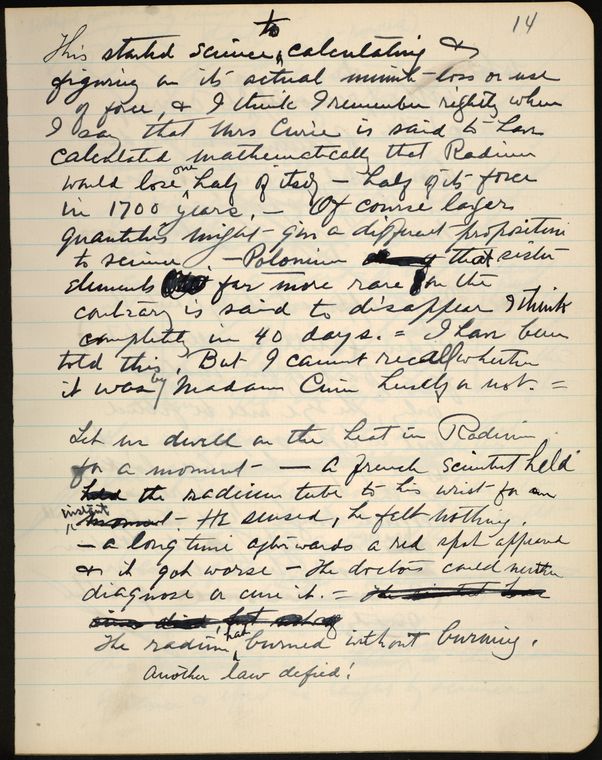 14
This started science to calculating &
figuring on its actual minute loss or use
of force, & I think I remember rightly when
I say that Mrs Curie is said to have
calculated mathematically that Radium
would lose one half of itself – half of its force
in 1700 years. – Of course larger
quantities might give a different proposition
to science. – Polonium that sister
element far more rare on the
contrary is said to disappear I think
completely in 40 days. = I have been
told this, But I cannot recall whether
it was by Madam Curie herself or not. =
Let us dwell on the heat in Radium
for a moment – — a French scientist held
the radium tube to his wrist for an
instant – He sensed, he felt nothing.
– a long time afterwards a red spot appeared
& it got worse – The doctors could neither
diagnose or cure it. =
The radium, had burned without burning.
Another law defied!